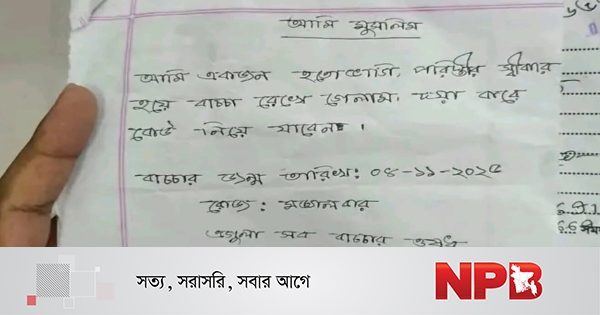 আমি মুসলিম
আমি একজন হতোভাগি, পরিস্তীর স্বীকার
হয়ে বাচ্চা রেখে গেলাম। দয়া করে
কেউ নিয়ে যাবেন।
বাচ্চার জন্ম তারিখ: ০৪-১১-২০২৫
রোজ: মঙ্গলবার
এগুলা সব বাচ্চার ওষুধ
সত্য, সরাসরি, সবার আগে
NPB